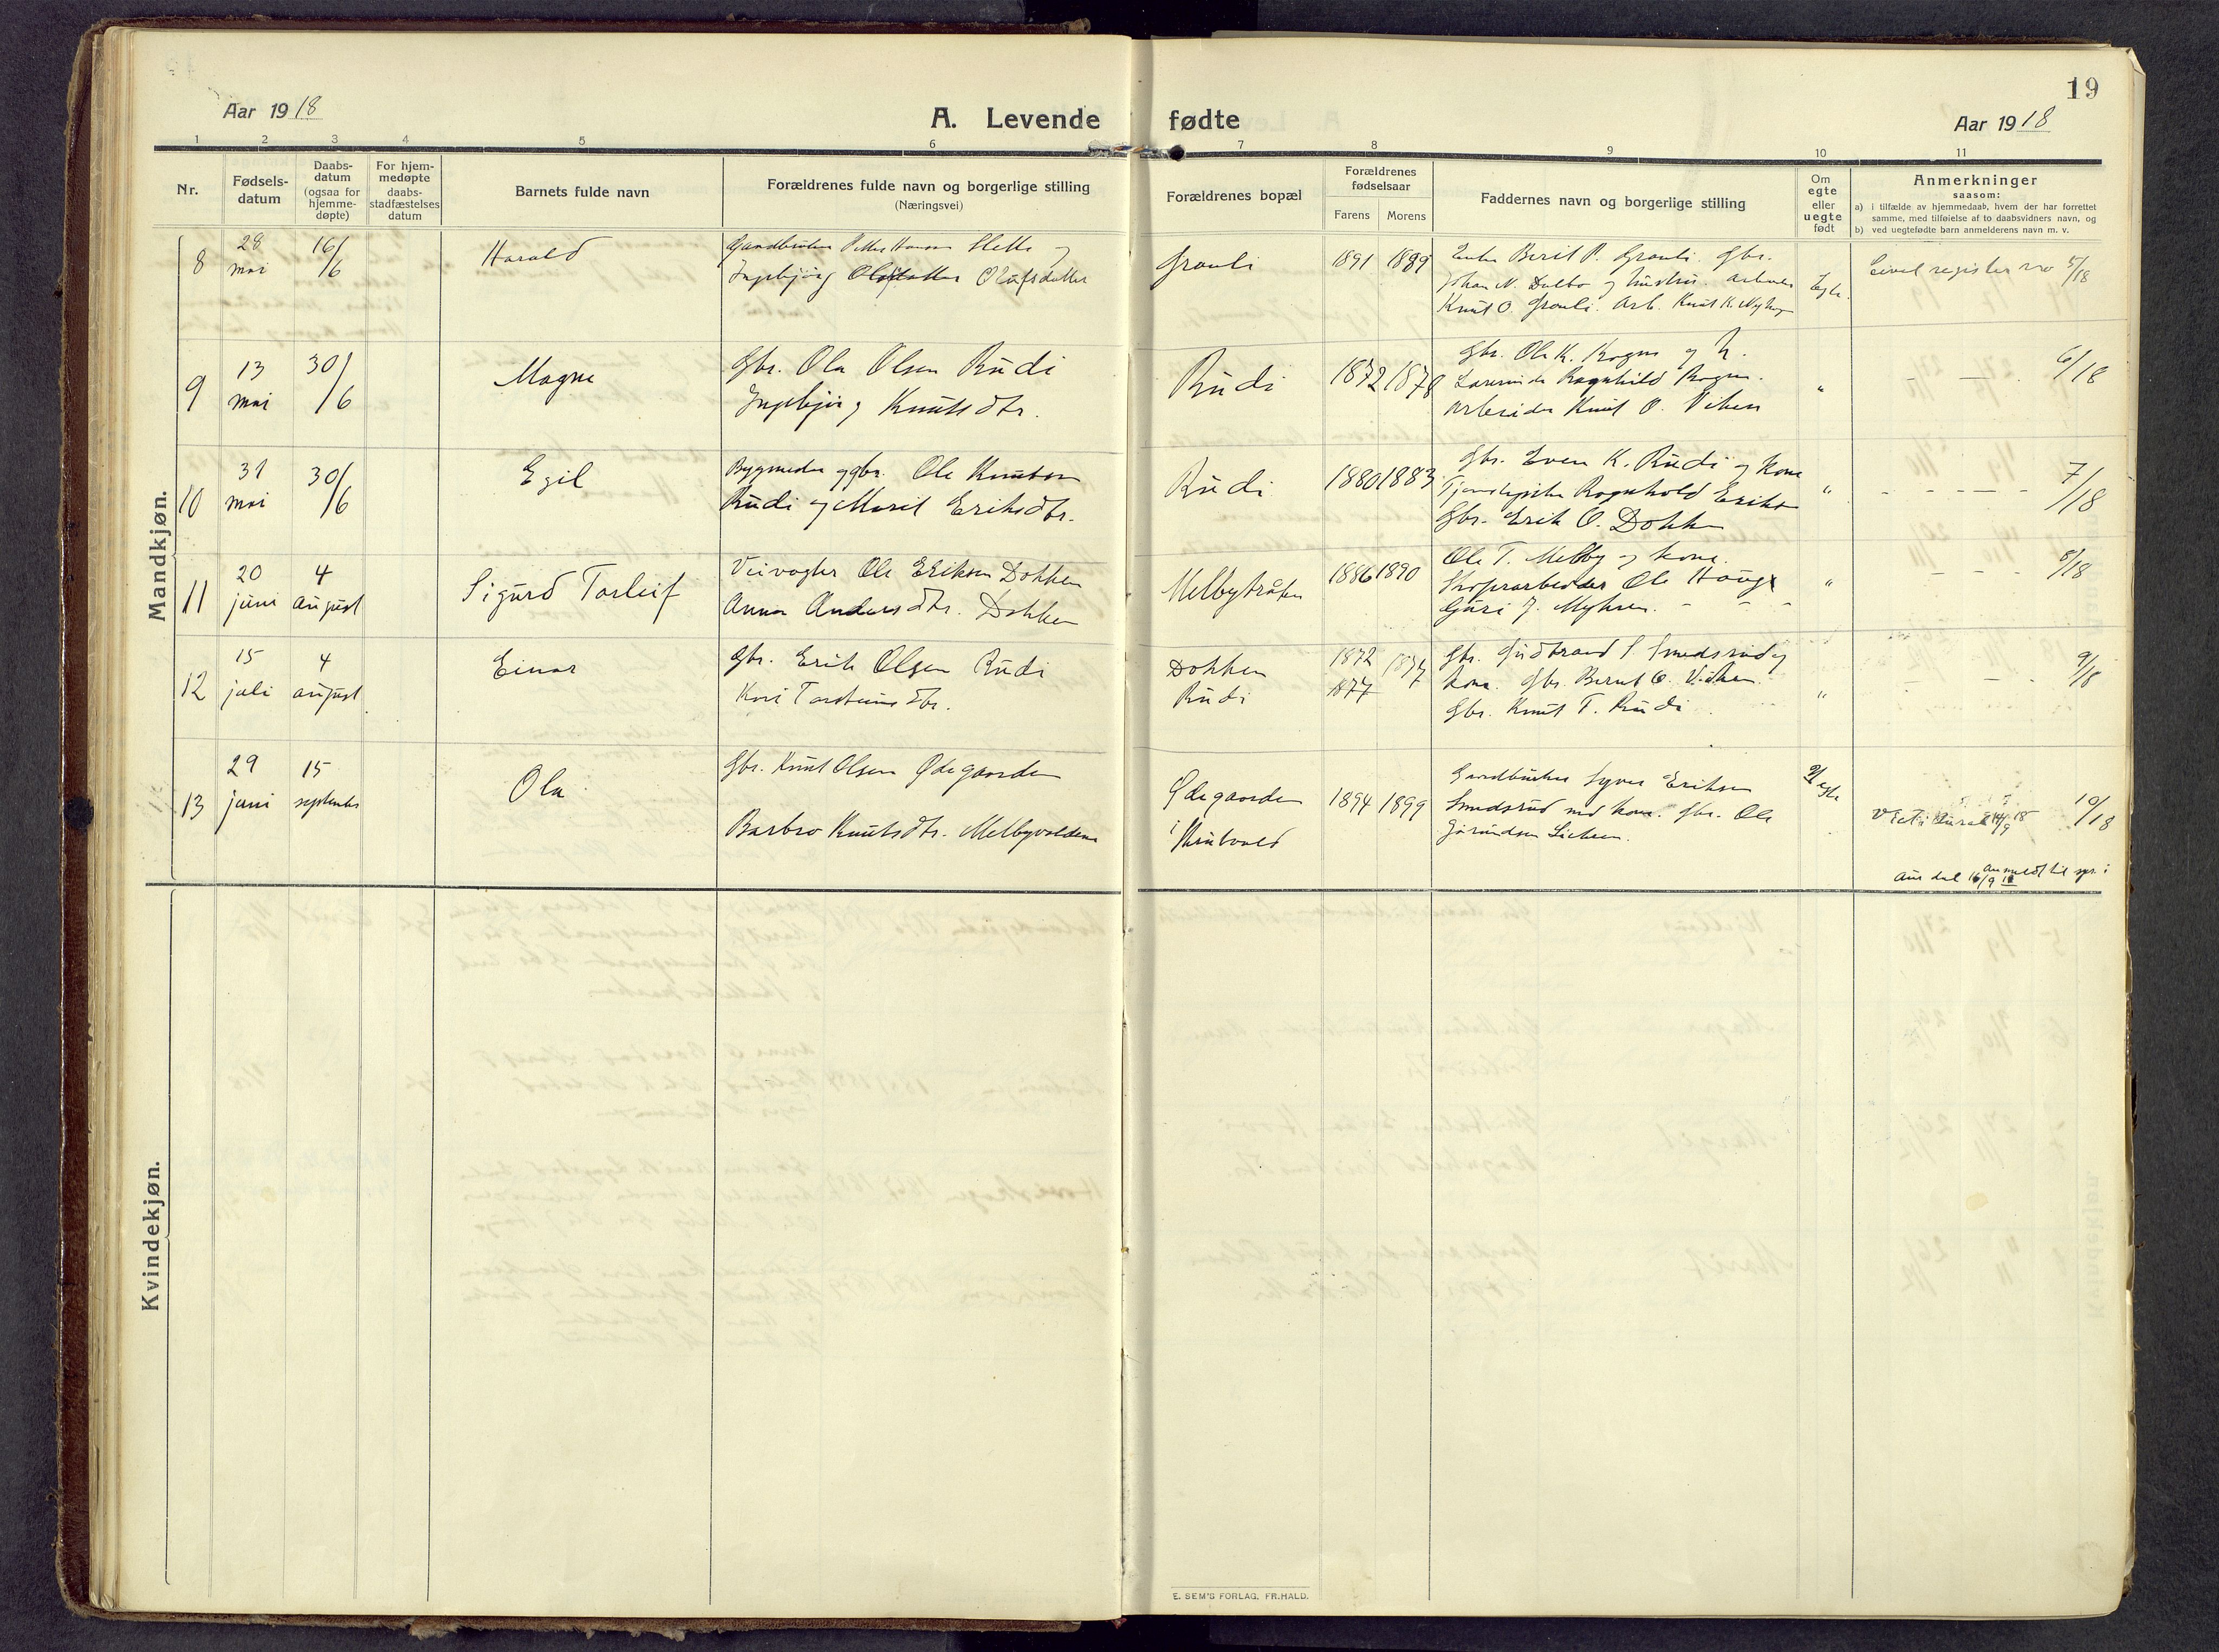 19
Aar 1918
A. Levende fødte
Aar 1918
1 2 3 4 5 6 7 8 9 10 11
Nr.
Fødsels-
datum
Daabs-
datum
(ogsaa for
hjemme-
døpte)
For hjem-
medøpte
daabs-
stadfæstelses
datum
Barnets fulde navn
Forældrenes fulde navn og borgerlige stilling
(Næringsvei)
Forældrenes bopæl
Forældrenes
fødselsaar
Farens Morens
Faddernes navn og borgerlige stilling
Om
egte
eller
uegte
født
Anmerkninger
saasom:
a) i tilfælde av hjemmedaab, hvem der har forrettet
samme, med tilføielse af to daabsvidners navn, og
b) ved uegtefødte barn anmelderens navn m. v.
Mandkjøn.
8
28
mai
16/6
Harald
Gaardbruker Petter Hansen
Ingebjørg Olufsdatter
Grønli
1891 1889
Enke Berit P. Grønli. Gbr.
Johan N. Dalbo og hustru. arbeider
Knut O. Grønli. Arb. Knut K.
Egte.
Civil register no 5/18
9
13
mai
30/6
Magne
Gbr. Ola Olsen Rudi
Ingebjørg Knutsdtr.
Rudi
1872 1878
Gbr. Ole K. Rogne og h.
Ragnhild Rogne.
Arbeider Knut O. Viken
"
- - . 6/18
10
31
mai
30/6
Egil
Bygmester og gbr. Ole Knutsen
Rudi og Marit Eriksdtr.
Rudi
1880 1883
Gbr. Even K. Rudi og kone
Tjenestepike Ragnhild Eriks
Gbr. Erik O. Dokken
"
- - - - - 7/18
11
20
juni
4
august
Sigurd Torleif
Veivogter Ole Eriksen Dokken
Anna Andersdtr. Dokken
Melbybråten
1886 1890
Ole T. Melby og kone.
Skogsarbeider Ole Hauge
Guri J. Myhren. - - -
"
- - - 8/18
12
15
juli
4
august
Einar
Gbr. Erik Olsen Rudi
Kari Torsteinsdtr.
Dokken
Rudi
1872
1877
1877
Gbr. Gudbrand S. Smedsrud og
kone. Gbr. Bernt O. Viken.
Gbr. Knut T. Rudi
"
- - - 9/18
13
29
juni
15
september
Ola
Gbr. Knut Olsen Ødegaarden
Barbro Knutsdtr. Melbyvolden
Ødegaarden
i
1894 1899
Gaardbruker Syver Eriksen
Smedsrud med kone. Gbr. Ole
Gjørundsen
Uegte
10/18
anmeldt til spr. i
Aurdal 16/9 18
Kvindekjøn.
E. SEM'S FORLAG, FR.HALD.